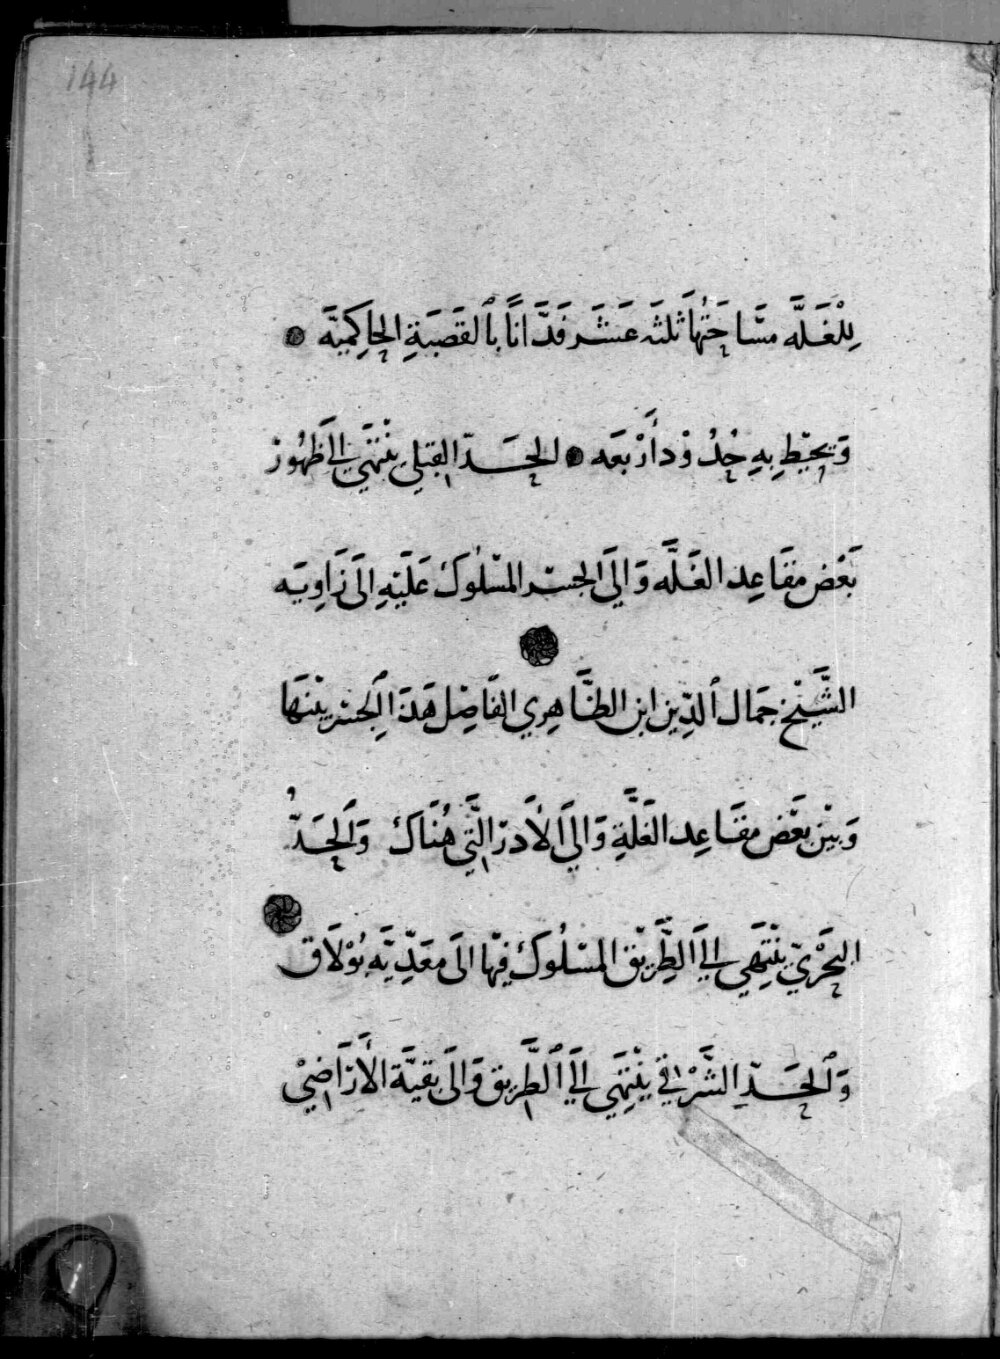 144
لِلْغَلَّه مسَاحَتُهَا ثَلثَه عَشَر فَدَّانًا بِالقَصَبَةِ الحَاكِميَّه
وَيحيْط بِهِ حُدُوْد أَرْبعَه الحَدّ القِبلي ينْتَهَي اليَ ظهُوُر
بَعْض مقَاعِد الغَلَّه وَاليَ الجسْر المسْلُوك عَلَيْهِ الىَ زَاوِيَه
الشَّيْخ جمَال الدِّين ابن الظَّاهِري الفَاصِل هَذَا الجِسْر بيْنهَا
وَبيْن بعَض مقَاعِد الغَلَّةِ وَاليَ الأَدر الَّتي هُنَاك وَالحَدُّ
البَحْرْيّ ينْتِهَي اليَ الطَّرِيْق المسْلُوَك فيْها الىَ معَدِّيَّه بُوْلَاق
وَالحَدّ الشَّرْقي ينْتِهَي اليَ الطَّرِيق وَالىَ بقيَّة الأَرَاضِيْ